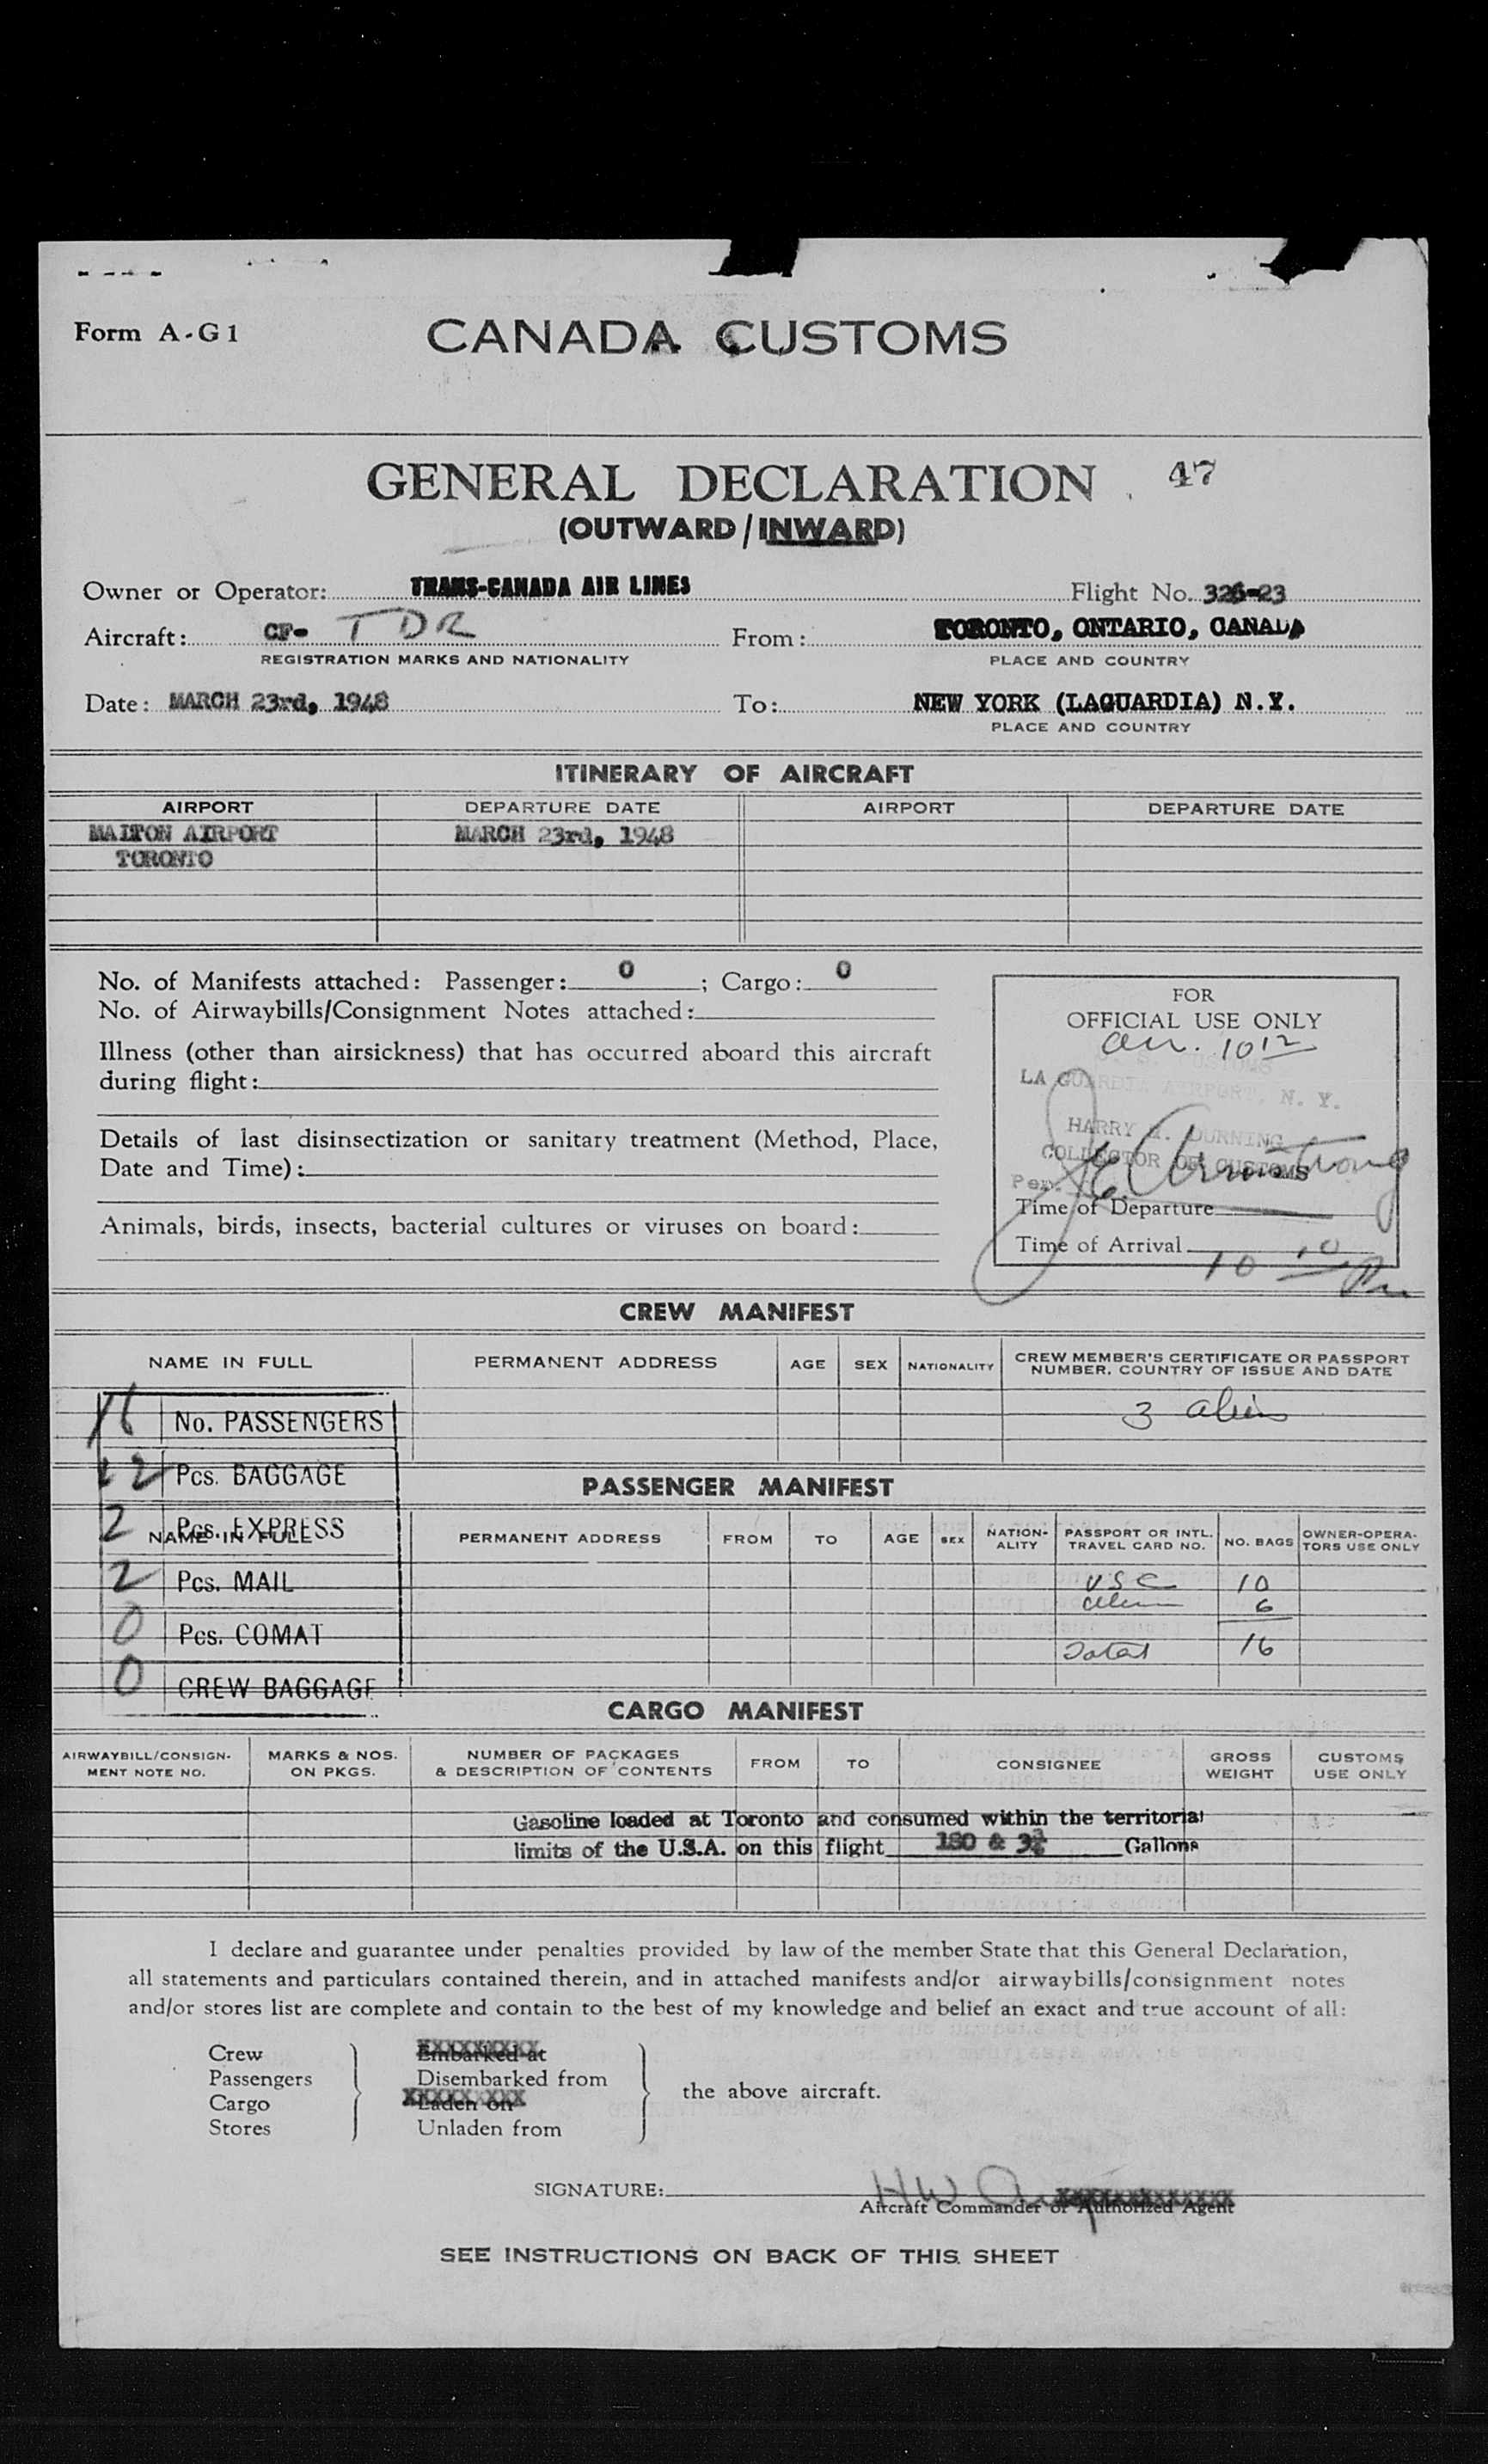 Form A-G1
CANADA CUSTOMS
GENERAL DECLARATION 47
(OUTWARD/INWARD)
Owner or Operator: TRANS-CANADA AIR LINES Flight No. 326-23
Aircraft: CF- TDR From: TORONTO, ONTARIO, CANADA
REGISTRATION MARKS AND NATIONALITY PLACE AND COUNTRY
Date: MARCH 23rd, 1948 To: NEW YORK (LAGUARDIA) N.Y.
PLACE AND COUNTRY
ITINERARY OF AIRCRAFT
AIRPORT DEPARTURE DATE AIRPORT DEPARTURE DATE
MALTON AIRPORT MARCH 23rd, 1948
TORONTO
No. of Manifests attached: Passenger: 0 ; Cargo: 0
No. of Airwaybills/Consignment Notes attached:
Illness (other than airsickness) that has occurred aboard this aircraft
during flight:
Details of last disinsectization or sanitary treatment (Method, Place,
Date and Time):
Animals, birds, insects, bacterial cultures or viruses on board:
FOR
OFFICIAL USE ONLY
arr. 10 12
CUSTOMS
LA GUARDIA AIRPORT, N. Y.
HARRY M. DURNING
COLLECTOR OF CUSTOMS
Per. Armstrong
Time of Departure
Time of Arrival 10 10 Pm
CREW MANIFEST
NAME IN FULL PERMANENT ADDRESS AGE SEX NATIONALITY CREW MEMBER'S CERTIFICATE OR PASSPORT
NUMBER, COUNTRY OF ISSUE AND DATE
3 alien
16 No. PASSENGERS
22 Pcs. BAGGAGE
2 Pcs. EXPRESS
2 Pcs. MAIL
0 Pcs. COMAT
0 CREW BAGGAGE
PASSENGER MANIFEST
NAME IN FULL PERMANENT ADDRESS FROM TO AGE SEX NATION-
ALITY PASSPORT OR INTL.
TRAVEL CARD NO. NO. BAGS OWNER-OPERA-
TORS USE ONLY
USC 10
alien 6
Total 16
CARGO MANIFEST
AIRWAYBILL/CONSIGN-
MENT NOTE NO. MARKS & NOS.
ON PKGS. NUMBER OF PACKAGES
& DESCRIPTION OF CONTENTS FROM TO CONSIGNEE GROSS
WEIGHT CUSTOMS
USE ONLY
Gasoline loaded at Toronto and consumed within the territorial
limits of the U.S.A. on this flight 180 & Gallons
I declare and guarantee under penalties provided by law of the member State that this General Declaration,
all statements and particulars contained therein, and in attached manifests and/or airwaybills/consignment notes
and/or stores list are complete and contain to the best of my knowledge and belief an exact and true account of all:
Crew Embarked at
Passengers Disembarked from
Cargo Laden on
Stores Unladen from
the above aircraft.
SIGNATURE: H W
Aircraft Commander or Authorized Agent
SEE INSTRUCTIONS ON BACK OF THIS SHEET